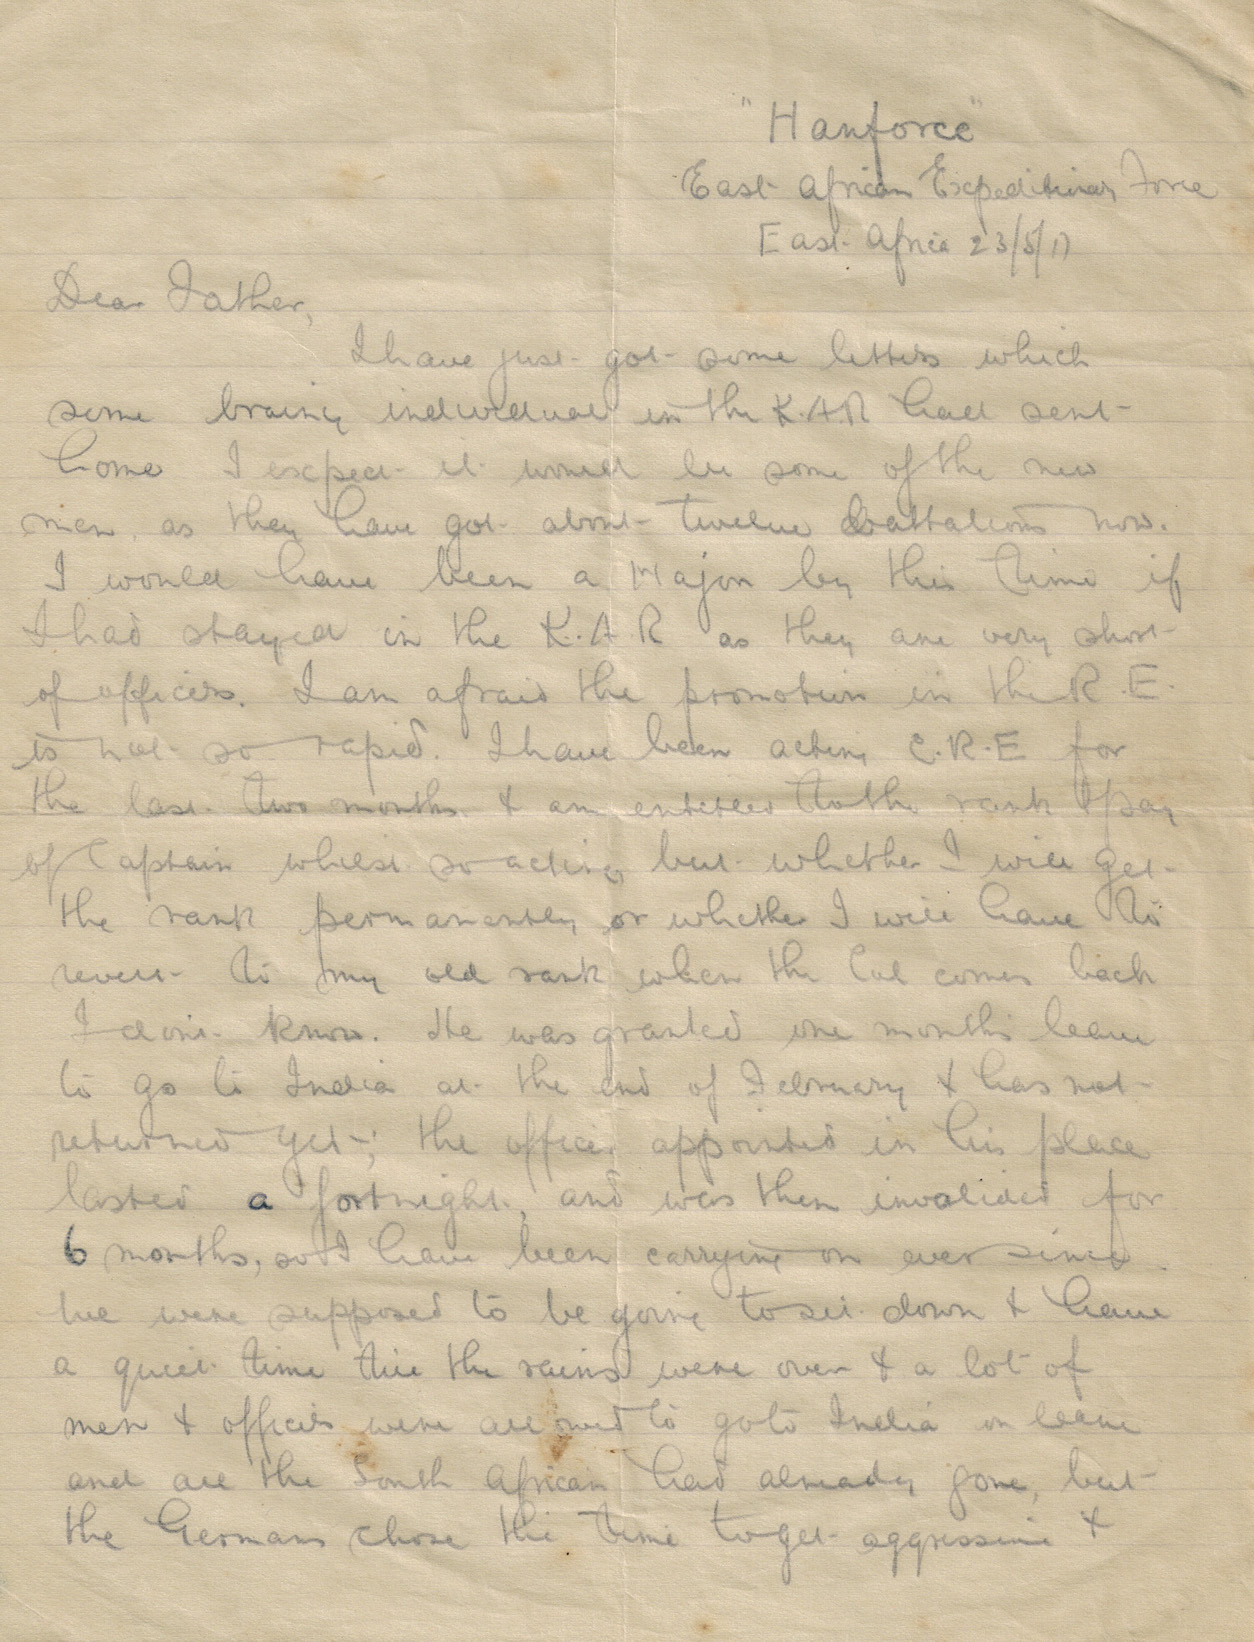 "Hanforce"
East African Expeditionary Force
East Africa 23/5/17
Dear Father,
I have just got some letters which
some brainy individual in the K.A.R had sent
home I expect it would be some of the new
men, as they have got about twelve battalions now.
I would have been a Major by this time if
I had stayed in the K.A.R as they are very short
of officers. I am afraid the promotion in the R.E.
is not so rapid. I have been acting C.R.E for
the last two months & am entitled to the rank & pay
of Captain whilst so acting but whether I will get
the rank permanently or whether I will have to
revert to my old rank when the Col comes back
I dont know. He was granted one months leave
to go to India at the end of February & has not
returned yet; the officer appointed in his place
lasted a fortnight, and was then invalided for
6 months, so I have been carrying on ever since.
We were supposed to be going to sit down & have
a quiet time till the rains were over & a lot of
men & officers were allowed to go to India on leave
and all the South African had already gone, but
the Germans chose this time to get aggressive &